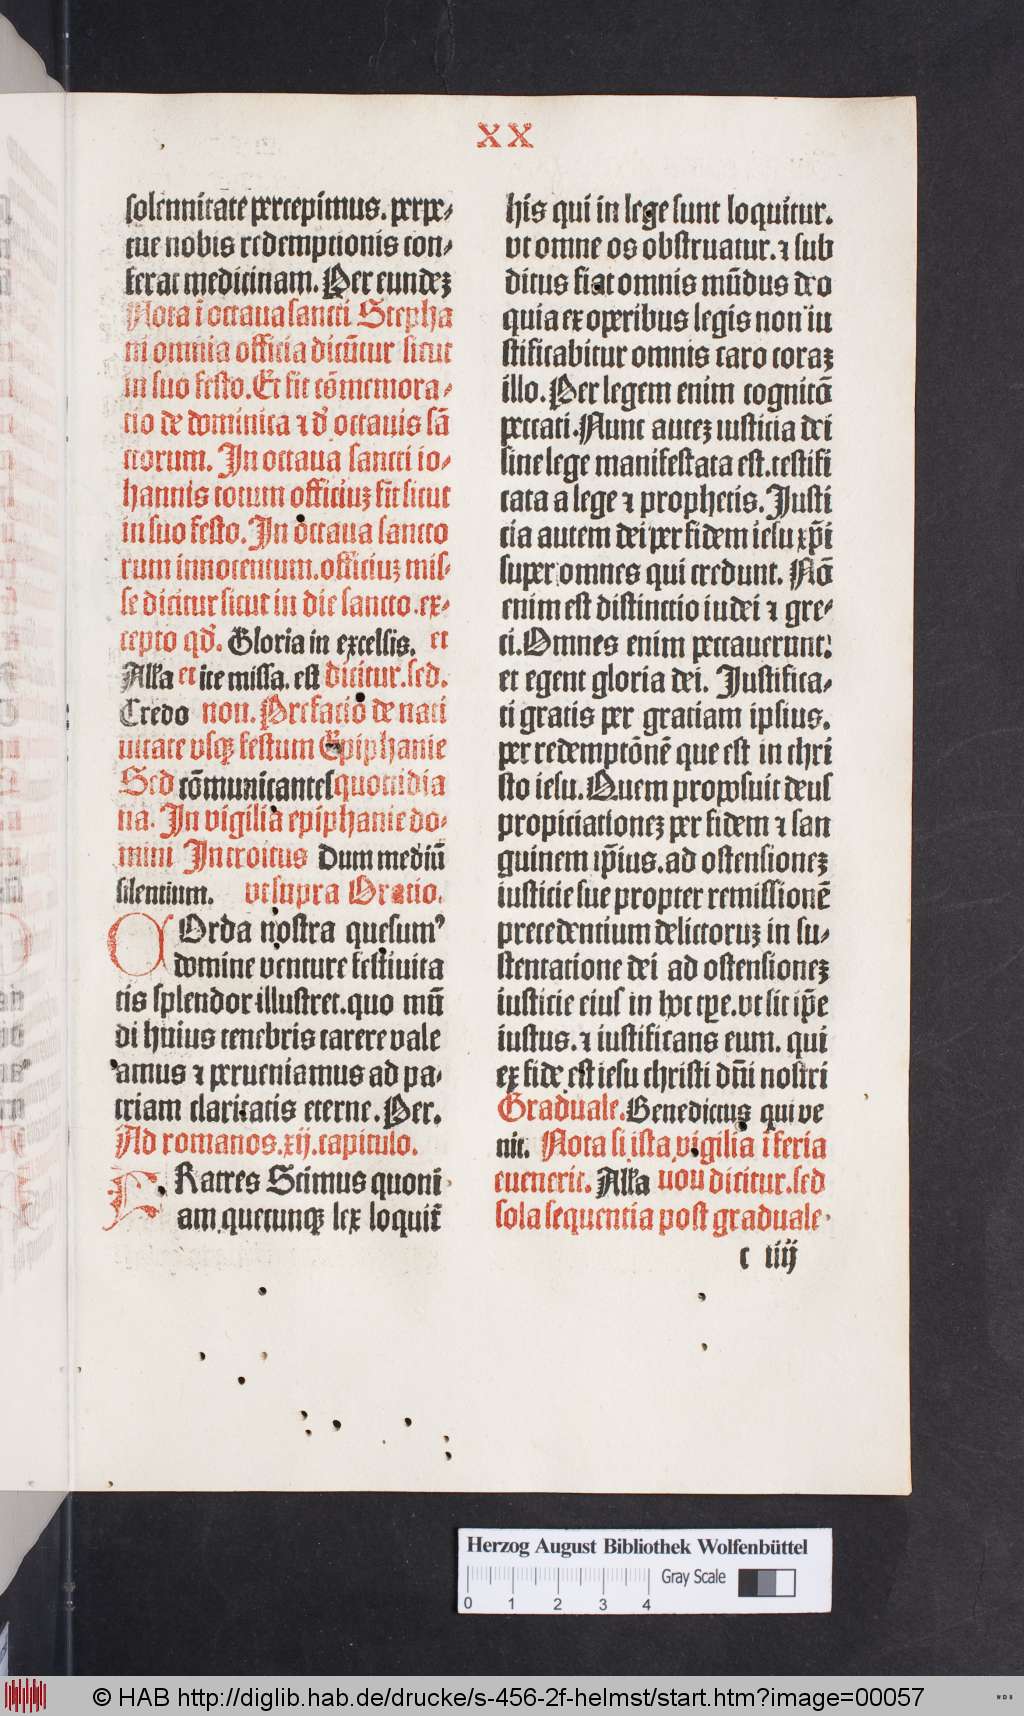 XX
solennitate percepimus. perpe-
tue nobis redemptionis con-
ferat medicinam. Per eundeꝫ
Nota ī octaua sancti Stepha
ni omnia officia dicūtur sicut
in suo festo. Et fit cōmemora-
tio de dominica ⁊ đ octauis sā
ctorum. In octaua sancti io-
hannis totum officiuꝫ fit sicut
in suo festo. In octaua sancto
rum innocentum. officiuꝫ mis-
se dicitur sicut in die sancto. ex-
cepto qđ. Gloria in excelsis. et
Alľa et ite missa. est dicitur. sed.
Credo non. Prefatio de nati
uitate vsqꝫ festum Epiphanie
Sed cōmunicantes quottidia
na. In vigilia epiphanie do-
mini Introitus Dum mediū
silentium. vt supra Oratio.
COrda nostra quesumꝰ
domine venture festiuita
tis splendor illustret. quo mū
di huius tenebris carere vale
amus ⁊ perueniamus ad pa-
triam claritatis eterne. Per.
Ad romanos. xij. capitulo.
FRatres Scimus quoni
am quecunqꝫ lex loquit̄
his qui in lege sunt loquitur.
vt omne os obstruatur. ⁊ sub
ditus fiat omnis mūdus deo
quia ex operibus legis non iu
stificabitur omnis caro coraꝫ
illo. Per legem enim cognitō
peccati. Nunc auteꝫ iusticia dei
sine lege manifestata est. testifi
cata a lege ⁊ prophetis. Justi
cia autem dei per fidem iesu xp̄i
super omnes qui credunt. Nō
enim est distinctio iudei ⁊ gre-
ci. Omnes enim peccauerunt:
et egent gloria dei. Justifica-
ti gratis per gratiam ipsius.
per redemptōnē que est in chri
sto iesu. Quem proposuit deus
propiciationeꝫ per fidem ⁊ san
guinem ip̄ius. ad ostensioneꝫ
iusticie sue propter remissionē
precedentium delictoruꝫ in su-
stentatione dei ad ostensioneꝫ
iusticie eius in hoc tꝑe. vt sit ip̄e
iustus. ⁊ iustificans eum. qui
ex fide est iesu christi dn̄i nostri
Graduale. Benedictus qui ve
nit. Nota si ista vigilia ī feria
euenerit. Alľa non dicitur. sed
sola sequentia post graduale.
c iiij
Herzog August Bibliothek Wolfenbüttel
Gray Scale
0 1 2 3 4
© HAB http://diglib.hab.de/drucke/s-456-2f-helmst/start.htm?image=00057